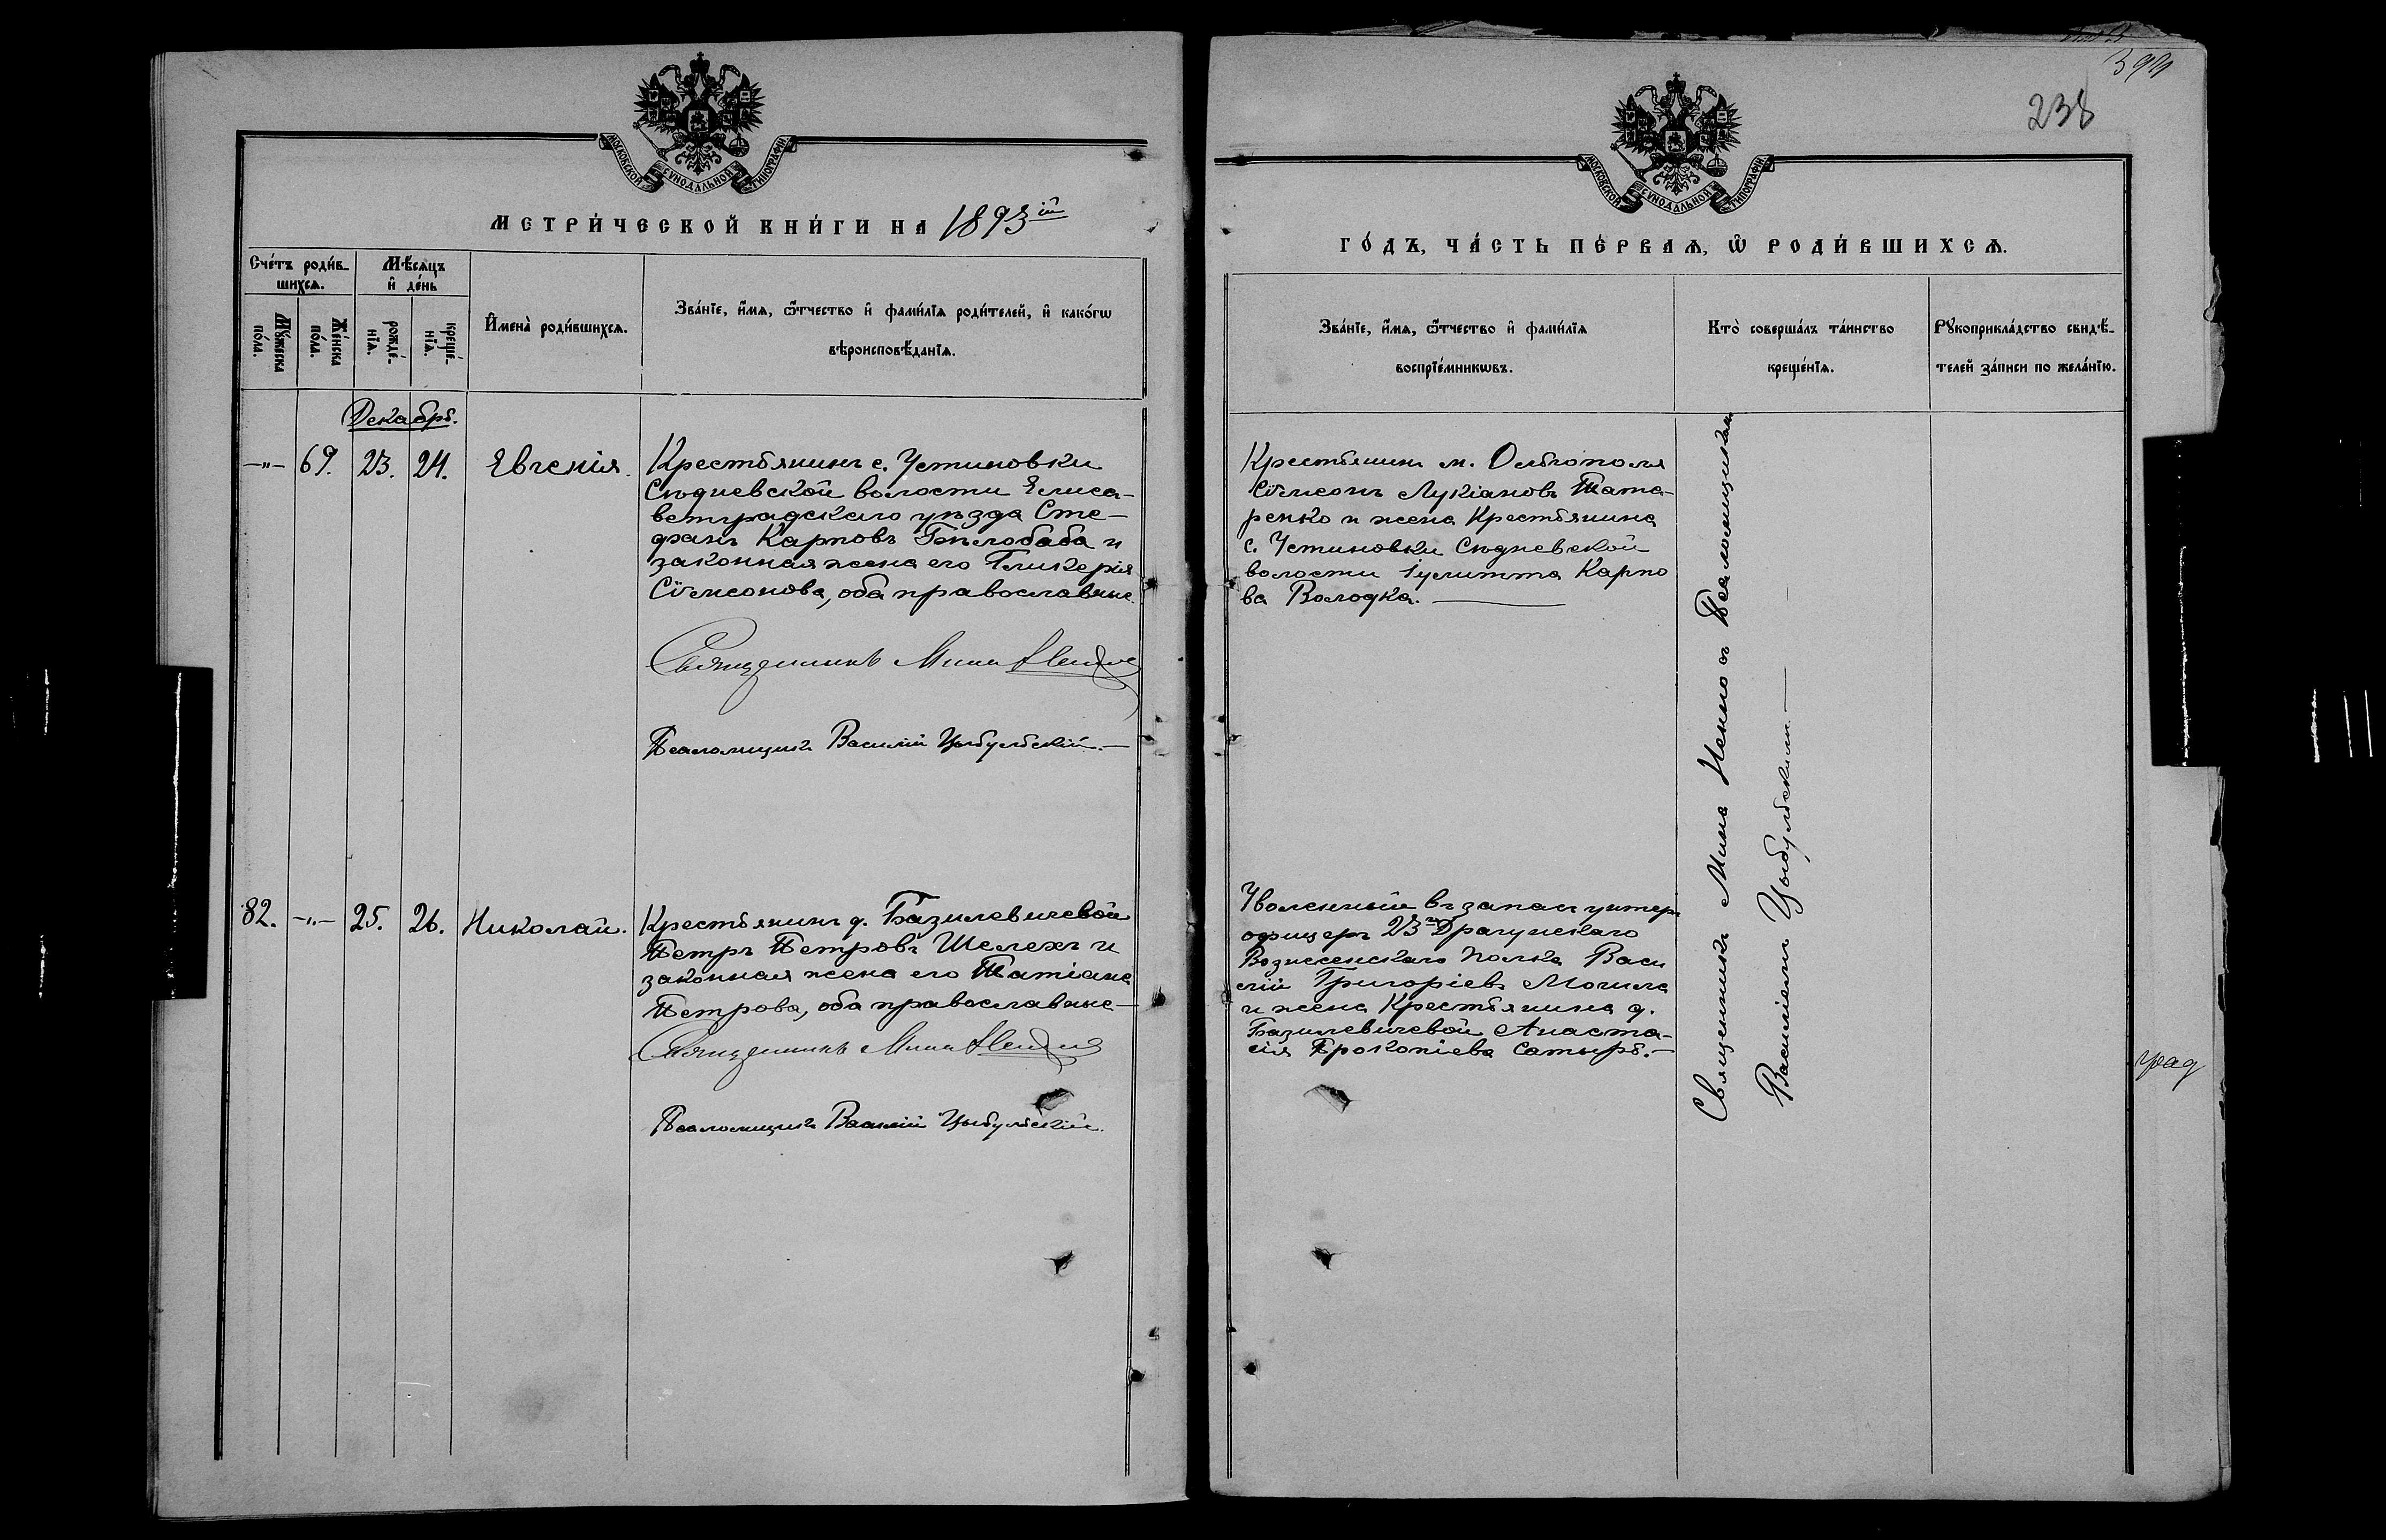 МОСКОВСКОЙ СѴНОДАЛЬНОЙ ТИПОГРАФІИ
МЕТРИ́ЧЕСКОЙ КНИ́ГИ НА 1893 ій
Сче́тъ роди́в-
шихсѧ.
Мѣ́сѧцъ
и҆ де́нь
Мꙋ́жеска
по́ла.
Же́нска
по́ла.
рожде́-
нїѧ.
креще́-
нїѧ.
И҆мена̀ роди́вшихсѧ.
Зва́нїе, и҆́мѧ, ѻ҆́тчество и҆ фами́лїѧ роди́телей, и҆ како́гѡ
вѣроисповѣ́данїѧ.
Декабрь.
—„— 69. 23. 24. Евгенія.
Крестьянинъ с. Устиновки
Сюдневской волости Елиса-
ветградскаго уѣзда Сте-
фанъ Карповъ Бѣлобаба и
законная жена его Гликерія
Сѷмеонова, оба православные.
Священникъ Мина
Псаломщикъ Василій Цыбульскій.—
82. —„— 25. 26. Николай.
Крестьянинъ д. Базилевичевой
Петръ Петровъ Шелехъ и
законная жена его Татіана
Петрова, оба православные—
Священникъ Мина
Псаломщикъ Василій Цыбульскій.
238
МОСКОВСКОЙ СѴНОДАЛЬНОЙ ТИПОГРАФІИ
ГО́ДЪ, ЧА́СТЬ ПЕ́РВАѦ, Ѡ҆ РОДИ́ВШИХСѦ.
Зва́нїе, и҆́мѧ, ѻ҆́тчество и҆ фами́лїѧ
воспрїе́мникѡвъ.
Кто̀ соверша́лъ та́инство
креще́нїѧ.
Рꙋкоприкла́дство свидѣ́-
телей за́писи по жела́нїю.
Крестьянинъ м. Ольвіополя
Сѷмеонъ Лукіановъ Тата-
ренко и жена Крестьянина
с. Устиновки Сюдневской
волости Іулитта Карпо
ва Володка.—
Уволенный въ запасъ унтеръ
офицеръ 23го Драгунскаго
Вознесенскаго полка Васи
лій Григоріевъ Могила
и жена Крестьянина д.
Базилевичевой Анаста-
сія Прокопіева Сатырь.—
Священникъ Мина Ненно съ Псаломщикомъ
Василіемъ Цыбульскимъ.—
град